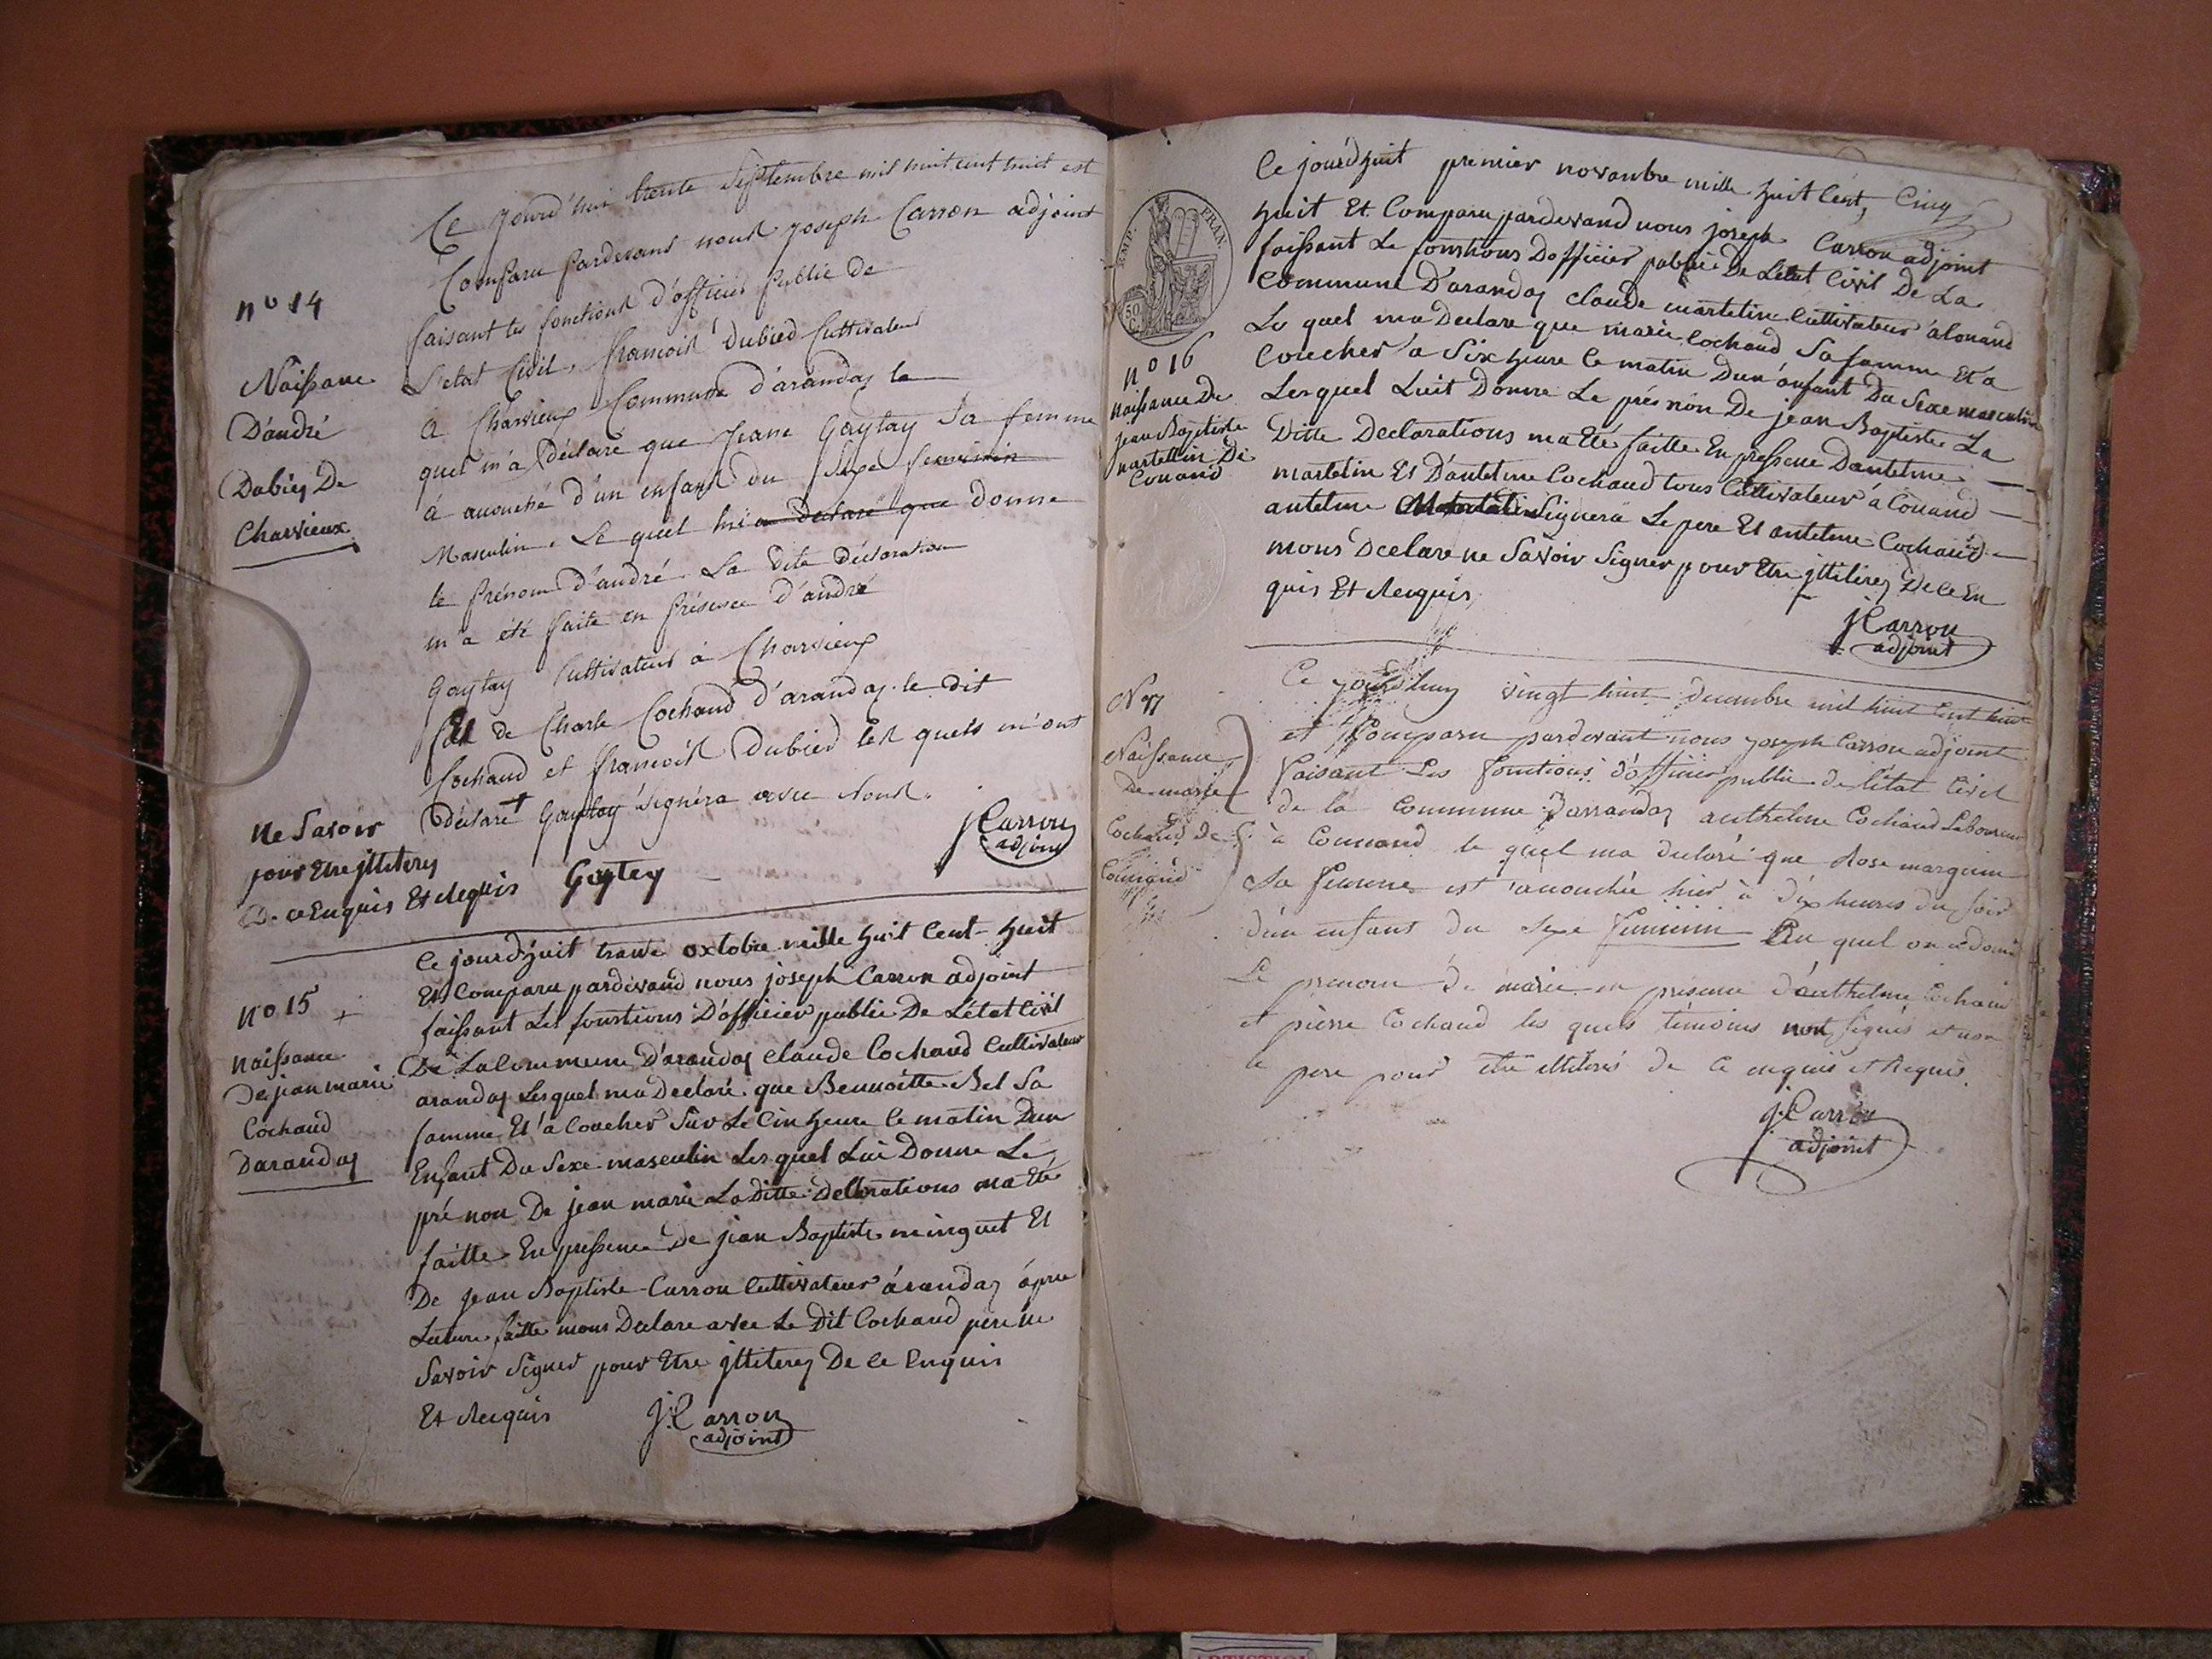 Ce Jourd'hui trente Septembre mil huit cent huit est
Comparu pardevant nous Joseph Carron adjoint
faisant les fonctions d'officier Public de
L'etat Civil, françois Dubied Cultivateur
à Charvieux Commune d'arandas le
quel m'a déclaré que Jeane Gaytay Sa femme
à accouché d'un enfant du Sexe feminin
Masculin. Le quel lui a Declaré que donne
le Prénom d'andré La dite déclaration
m'a été faite en Présence d'andré
Gaytay Cultivateur à Charvieux
et de Charle Cochaud d'arandas. le dit
Cochaud et françois Dubied les quels m'ont
Déclaré + Gaytay signera avec Nous.
n° 14
Naissance
D'andré
Dubiez De
Charvieux
ne Savoir
pour Etre jlliterez
De ce Enquis Et Requis
Gaytey
J Carron
adjoint
Ce jourd'huit trante oxtobre mille huit Cent huit
Et Comparu pardevand nous joseph Carron adjoint
faissant Les fonstions D'officier public De L'état Civil
De La Commune D'arandas Claude Cochaud Cultivateur
arandas Lesquel ma Declaré que Bennoitte Bel Sa
famme Et a Coucher Sur Le Cin heure le matin Dun
Enfant Du Sexe masculin Lesquel Lui Donne Le
pré non De jean marie La Ditte Dellorations ma ete
faitte En pressence De jean Baptiste minguet Et
De jean Baptiste Carron Cultivateur à randas apre
Lecture faitte mons Declare avec Le Dit Cochaud pere ne
Savoir Signer pour Etre jlliterez De ce Enquis
Et Requis
n° 15
naissance
De jean marie
Cochaud
Darandas
J Carron
adjoint
Ce jourd'huit premier novanbre mille huit Cent, Cinq
huit Et Comparu pardevand nous joseph Carron adjoint
faissant Le fonstions Dofficier public De Letat Civil De La
Commune D'arandas claude martelin Cultivateur a Conand
Le quel ma Declare que marie Cochaud Sa famme Et a
Coucher a Six heure le matin Dun anfant Du Sexe masculin
Lesquel Luit Donne Le prés nón De jean Baptiste La
Ditte Declarations ma Eté faitte En pressence Dantelme
martelin Et D'antelme Cochaud tous Cultivateur à Conand
antelme Martelin Signera Le pere Et antelme Cochaud
mons Declare ne Savoir Signer pour Etre jlliterez De ce En
quis Et Requis
EMP. FRAN.
50
C.
n° 16
naissance De
jean Baptiste
martellin De
Conand
J Carron
adjoint
Ce jourdhuy vingt huit decembre mil huit Cent huit
et Comparu pardevant nous Joseph Carron adjoint
faisant Les fonctions d'officier public de l'état Civil
de la Commune Darrandas anthelme Cochaud Laboureur
à Connand le quel ma declaré que Rose marguin
Sa femme est accouchée hier à dix heures du soir
d'un enfant du Sexe feminin Au quel on a donné
Le prenom de marie en présence d'anthelme Cochaud
et pierre Cochaud les quels témoins non signés et non
le pere pour etre illiterés de ce enquis et Requis
N° 17
Naissance
De marie
Cochaud De
Connand
J. Carron
adjoint